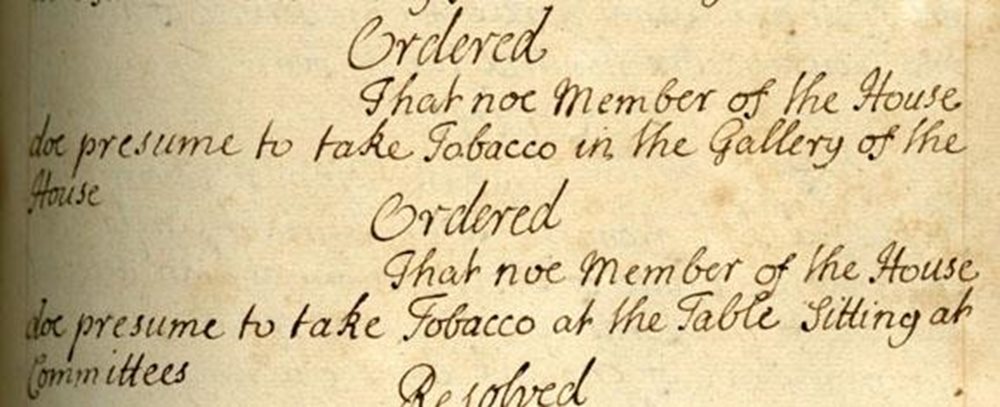 Ordered
That noe Member of the House
doe presume to take Tobacco in the Gallery of the
House
Ordered
That noe Member of the House
doe presume to take Tobacco at the Table Sitting at
Committees
Resolved